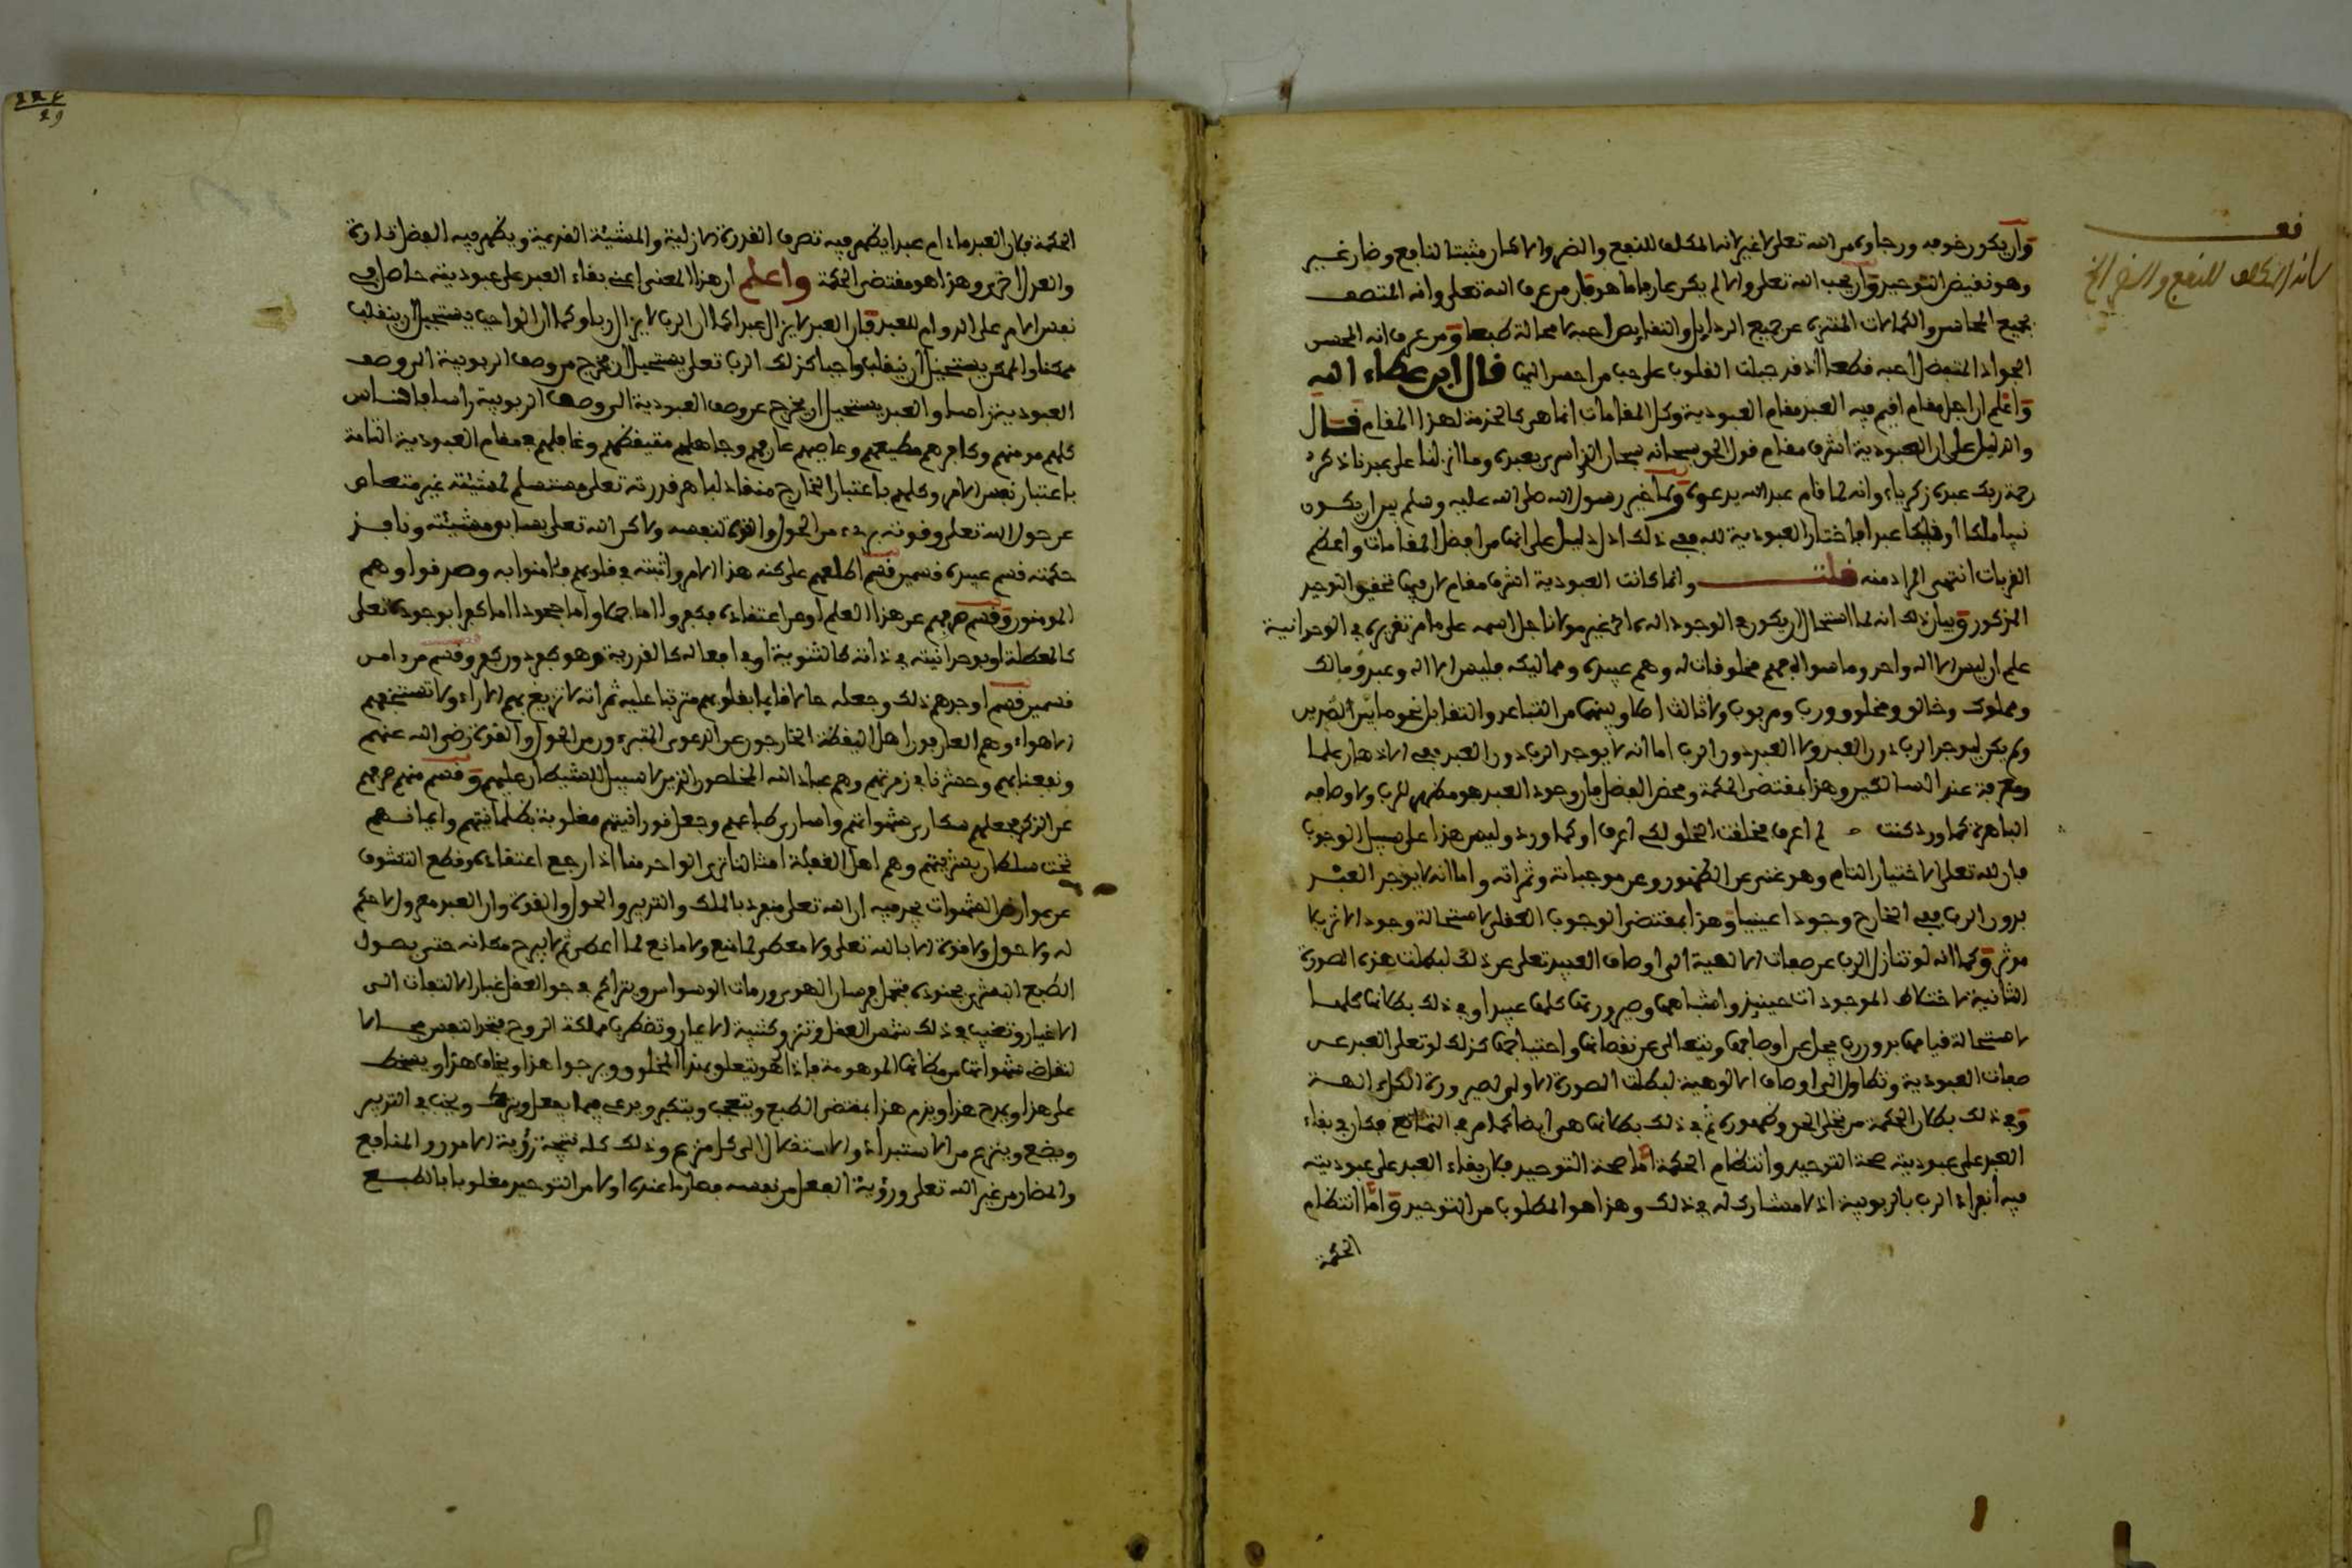 وأن يكون خوفه ورجاؤه من الله تعلى لا غير لانه المكلف للنفع والضر والا لكان مثبتا لنافع وضار غيره
وهو نقيض التوحيد وأن يحب الله تعلى والا لم يكن عارفا ما هو فإن من عرف الله تعلى وانه المتصف
بجميع المحاسن والكمالات المنزه عن جميع الرذايل والنقايص احبه لا محالة طبعا ومن عرف انه المحسن
الجواد المتفضل احبه قطعا اذ قد جبلت القلوب على حب من احسن اليها قال ابن عطاء الله
واعلم ان اجل مقام اقيم فيه العبد مقام العبودية وكل المقامات انما هي كالخدمة لهذا المقام قال
والدليل على ان العبودية اشرف مقام قول الحق سبحانه سبحان الذي اسرى بعبده وما انزلنا على عبدنا ذكر
رحمة ربك عبده زكرياء وانه لما قام عبد الله يدعوه ولما خير رسول الله صلى الله عليه وسلم بين ان يكون
نبيا ملكا او نبيا عبدا فاختار العبودية لله ففي ذلك ادل دليل على انها من افضل المقامات واعظم
القربات انتهى المراد منه قلت وانما كانت العبودية اشرف مقام لان فيها تحقيق التوحيد
المذكور وبيان ذلك انه لما استحال ان يكون في الوجود اله ما غير مولانا جل اسمه على ما مر تقريره في الوحدانية
علم ان ليس الا اله واحد وما سواه فهم مخلوقات له وهم عبيده ومماليكه فليس الا اله وعبد ومالك
ومملوك وخالق ومخلوق ورب ومربوب ولا ثالث اصلا وبينهما من التباعد والتقابل نحو ما بين الضدين
ولم يكن ليوجد الرب دون العبد ولا العبد دون الرب اما انه لا يوجد الرب دون العبد ففي الاذهان علما
ومعرفة عند السالكين وهذا بمقتضى الحكمة ومحض الفضل فإن وجود العبد هو مظهر للرب ولاوصافه
الباهرة كما ورد كنت لم اعرف فخلقت الخلق لكي اعرف او كما ورد وليس هذا على سبيل الوجوب
فان لله تعلى الاختيار التام وهو غني عن الظهور وعن موجباته وثمراته واما انه لا يوجد العبد
بدون الرب ففي الخارج وجودا عينيا وهذا بمقتضى الوجوب العقلي لاستحالة وجود الاثر بلا
مؤثر وكما انه لو تنازل الرب عن صفات الالهية الى اوصاف العبيد تعلى عن ذلك لبطلت هذه الصورة
الثانية لاختلاط الموجودات حينيذ واشتباهها وصيرورتها كلها عبيدا وفي ذلك بطلانها كلها
لاستحالة قيامها بدون رب يجل عن اوصافها ويتعالى عن نقصانها واحتياجها كذلك لو تعلى العبد عن
صفات العبودية وتطاول الى اوصاف الالوهية لبطلت الصورة الاولى لصيرورة الكل الهة
وفي ذلك بطلان الحكمة من تجلى الحق وظهوره ثم في ذلك بطلانها هي ايضا كما مر في التمانع فكان في بقاء
العبد على عبوديته صحة التوحيد وانتظام الحكمة اما صحة التوحيد فلان بقاء العبد على عبوديته
فيه انفراد الرب بالربوبية اذ لا مشارك له في ذلك وهذا هو المطلوب من التوحيد واما انتظام
الحكمة
قف
لانه المكلف للنفع والضر الخ
الحكمة فلان العبد ما دام عبدا يظهر فيه تصرف القدرة الازلية والمشيئة القديمة ويظهر فيه الفضل تارة
والعدل اخرى وهذا هو مقتضى الحكمة واعلم ان هذا المعنى اعني بقاء العبد على عبوديته حاصل في
نفس الامر على الدوام للعبد فان العبد لا يزال عبدا كما ان الرب لا يزال ربا وكما ان الواجب يستحيل ان ينقلب
ممكنا والممكن يستحيل ان ينقلب واجبا كذلك الرب تعلى يستحيل ان يخرج من وصف الربوبية الى وصف
العبودية اصلا والعبد يستحيل ان يخرج عن وصف العبودية الى وصف الربوبية راسا فالناس
كلهم مومنهم وكافرهم مطيعهم وعاصيهم عارفهم وجاهلهم متيقظهم وغافلهم في مقام العبودية التامة
باعتبار نفس الامر وكلهم باعتبار الخارج منقاد لباهر قدرته تعلى مستسلم لمشيئته غير متعاص
عن حول الله تعلى وقوته من الحول والقوة لنفسه ولاكن الله تعلى بسابق مشيئته ونافذ
حكمته قسم عبيده قسمين قسم اطلعهم على كنه هذا الامر واثبته في قلوبهم فامنوا به وصدقوا وهم
المومنون وقسم صرفهم عن هذا العلم او عن اعتقاده فكفروا اما جهلا واما جحودا اما كفرا بوجوده تعلى
كالمعطلة او بوحدانيته في ذاته كالثنوية او في افعاله كالقدرية وهو كفر دون كفر وقسم من امن
قسمين قسم اوجدهم ذلك وجعله حالا قايما بقلوبهم مترتبا عليه ثمراته لا تزيغ بهم الاراء ولا تستخفهم
الاهواء وهم العارفون اهل اليقظة الخارجون عن الدعوى المتبرءون من الحول والقوة رضي الله عنهم
ونفعنا بهم وحشرنا في زمرتهم وهم عباد الله المخلصون الذين لا سبيل للشيطان عليهم وقسم منهم صرفهم
عن الذكر فجعلهم سكارى شهواتهم واسارى طباعهم وجعل نورانيتهم مغلوبة بظلمانيتهم وايمانهم
تحت سلطان بشريتهم وهم اهل الغفلة امثالنا ترى الواحد منا اذا رجع اعتقاده وقطع التشوف
عن عوارض الشهوات يجد فيه ان الله تعلى منفرد بالملك والتدبير والحول والقوة وان العبد معزول لا حكم
له ولا حول ولا قوة الا بالله تعلى ولا معطي لما منع ولا مانع لما اعطى ثم لا يبرح مكانه حتى يصول
الطبع البشري بجنوده فتهاجر سار الهوى ورمات الوسواس ويتراكم في جو العقل غبار الالتفات الى
الاغيار وتغيب في ذلك شمس العقل وتنزو كتيبة الاغيار وتضطرب مملكة الروح فتجد النفس مجالا
لتقاضي شهواتها من مظانها الموهومة فاذا هو يتعلق بهذا المخلوق ويرجوا هذا ويخاف هذا ويسخط
على هذا ويمدح هذا ويذم هذا بمقتضى الطبع ويتعجب ويتكبر ويدعي فيما يفعل ويترك ويخب في التدبير
ويضع وينزع من الاستبداد والاستقلال الى كل منزع وذلك كله نتيجة رؤية الامور والمنافع
والمضار من غير الله تعلى ورؤية الفعل من نفسه فصار ما عنده اولا من التوحيد مغلوبا بالطبع